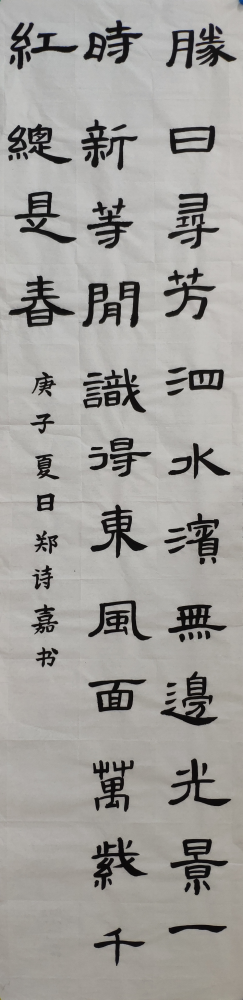 勝日尋芳泗水濱無邊光景一
時新等閒識得東風面萬紫千
紅總是春
庚子夏日郑诗嘉书